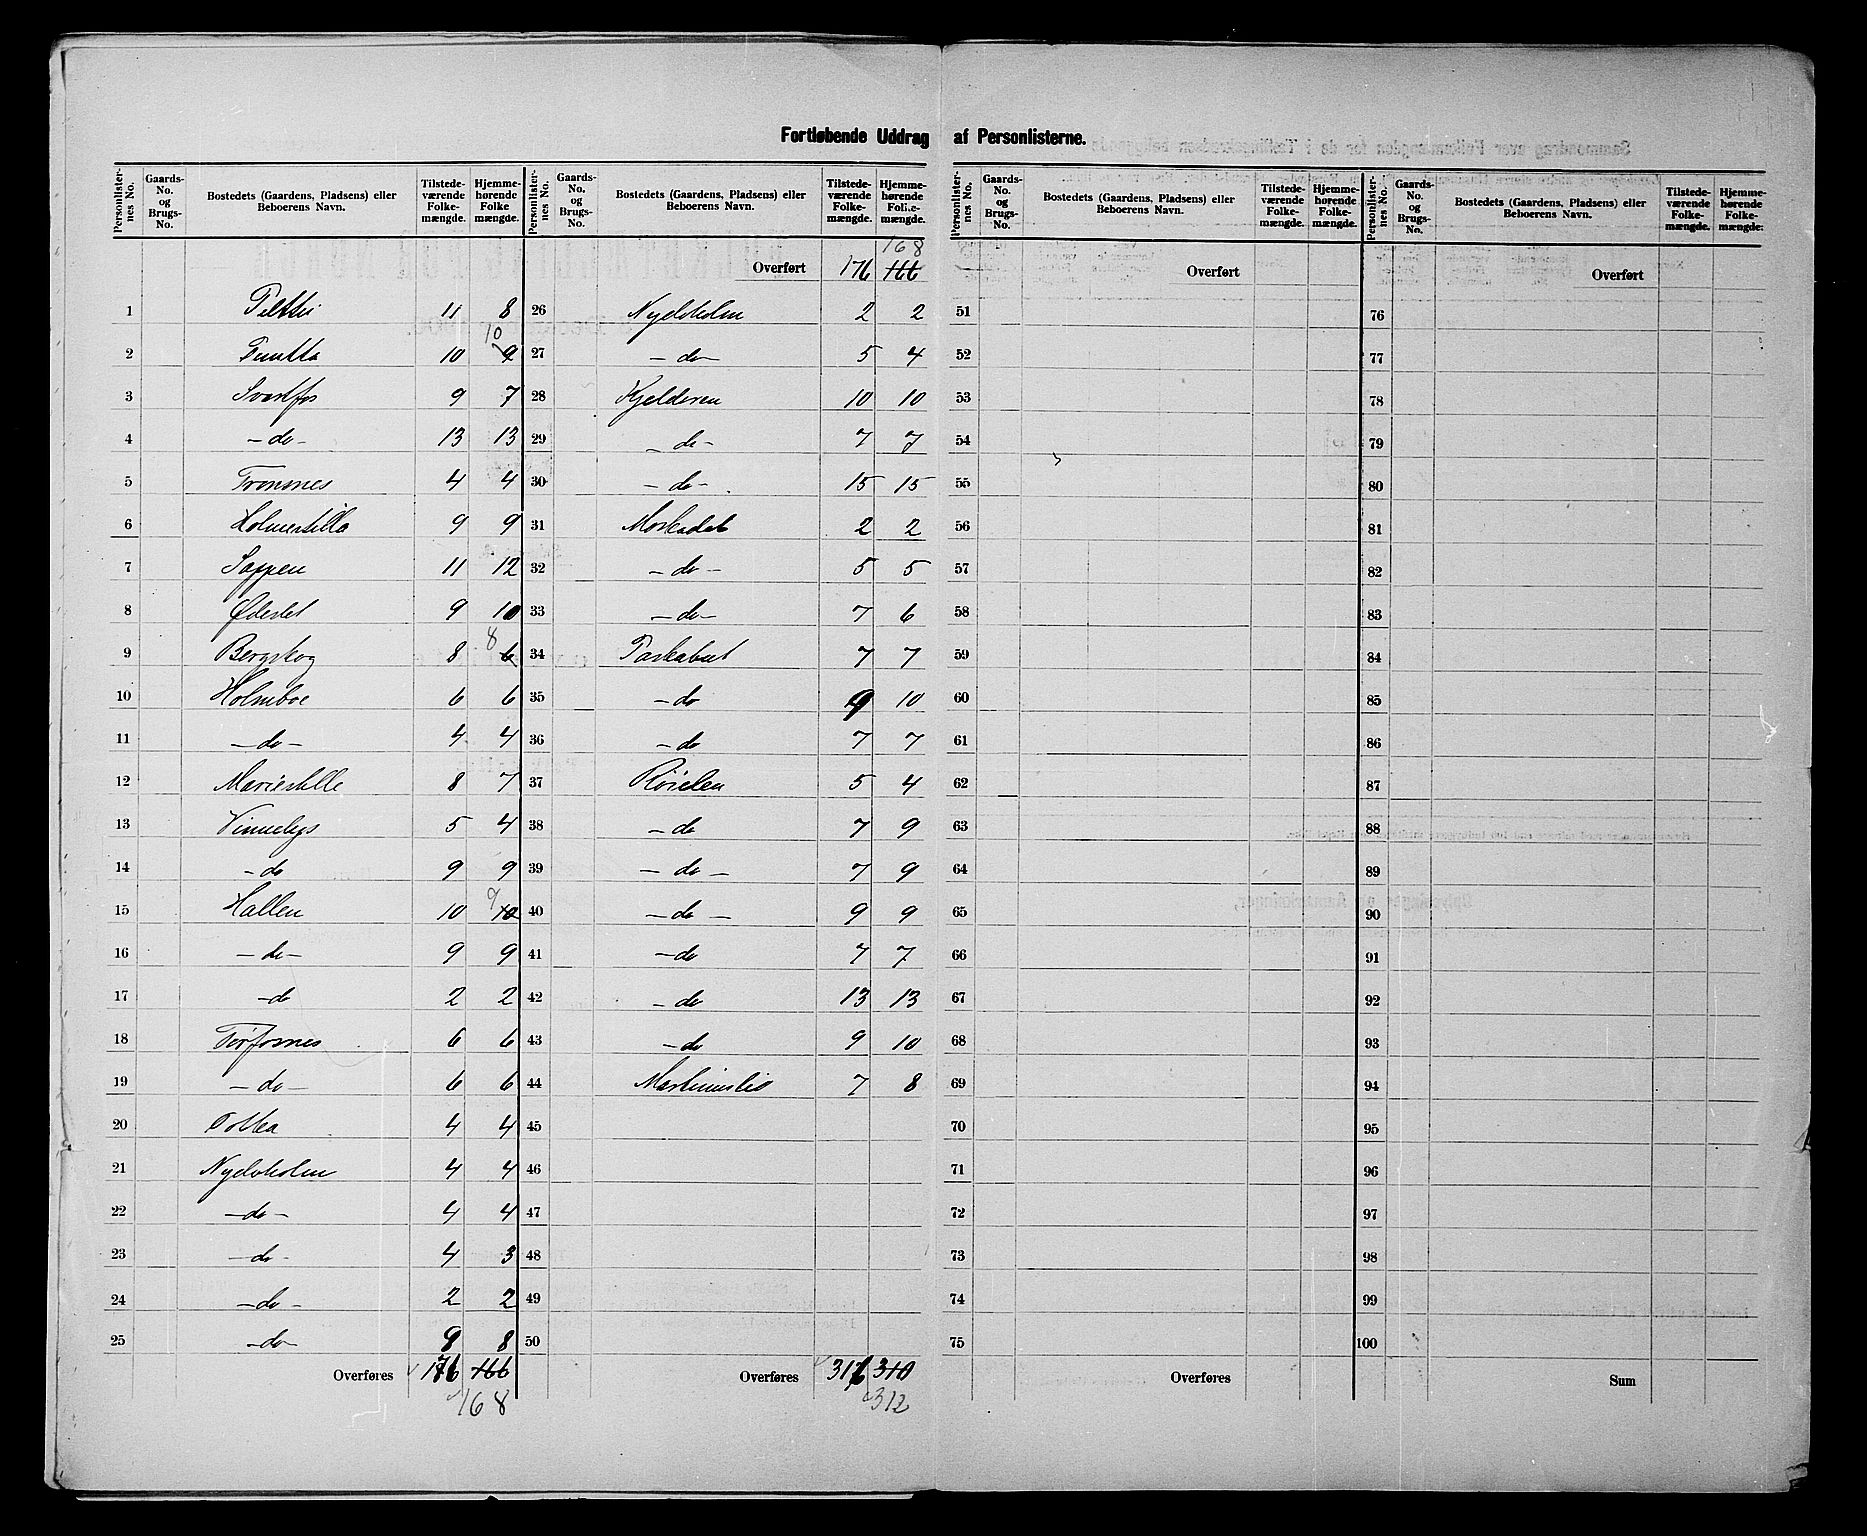 Fortløbende Uddrag af Personlisterne.
Personlisternes No. Gaards-No. og Brugs-No. Bostedets (Gaardens, Pladsens) eller Beboerens Navn. Tilstedeværende Folkemængde. Hjemmehørende Folkemængde.
1 11 8
2 10 9 10
3 Svartfos 9 7
4 —do— 13 13
5 Tronsnes 4 4
6 9 9
7 Sappen 11 12
8 9 10
9 Bergskog 8 6 8
10 Holmboe 6 6
11 —do— 4 4
12 8 7
13 5 4
14 —do 9 9
15 Hallen 10 10 9
16 —do— 9 9
17 —do 2 2
18 Torfosnes 6 6
19 —do— 6 6
20 4 4
21 Nydvholm 4 4
22 —do— 4 4
23 —do— 4 3
24 —do— 2 2
25 —do— 9 8
Overføres 176 166
168
Personlisternes No. Gaards-No. og Brugs-No. Bostedets (Gaardens, Pladsens) eller Beboerens Navn. Tilstedeværende Folkemængde. Hjemmehørende Folkemængde.
168
Overført 176 166
26 Nydvholm 2 2
27 —do— 5 4
28 Kjelderen 10 10
29 —do— 7 7
30 —do— 15 15
31 Moskodal 2 2
32 —do— 5 5
33 —do— 7 6
34 7 7
35 —do 9 10
36 —do 7 7
37 Røielen 5 4
38 —do 7 9
39 —do— 7 9
40 —do— 9 9
41 —do 7 7
42 —do 13 13
43 —do 9 10
44 Martinislid 7 8
45
46
47
48
49
50
Overføres 316 310
312
Personlisternes No. Gaards-No. og Brugs-No. Bostedets (Gaardens, Pladsens) eller Beboerens Navn. Tilstedeværende Folkemængde. Hjemmehørende Folkemængde.
Overført
51
52
53
54
55
56
57
58
59
60
61
62
63
64
65
66
67
68
69
70
71
72
73
74
75
Overføres
Personlisternes No. Gaards-No. og Brugs-No. Bostedets (Gaardens, Pladsens) eller Beboerens Navn. Tilstedeværende Folkemængde. Hjemmehørende Folkemængde.
Overført
76
77
78
79
80
81
82
83
84
85
86
87
88
89
90
91
92
93
94
95
96
97
98
99
100
Sum